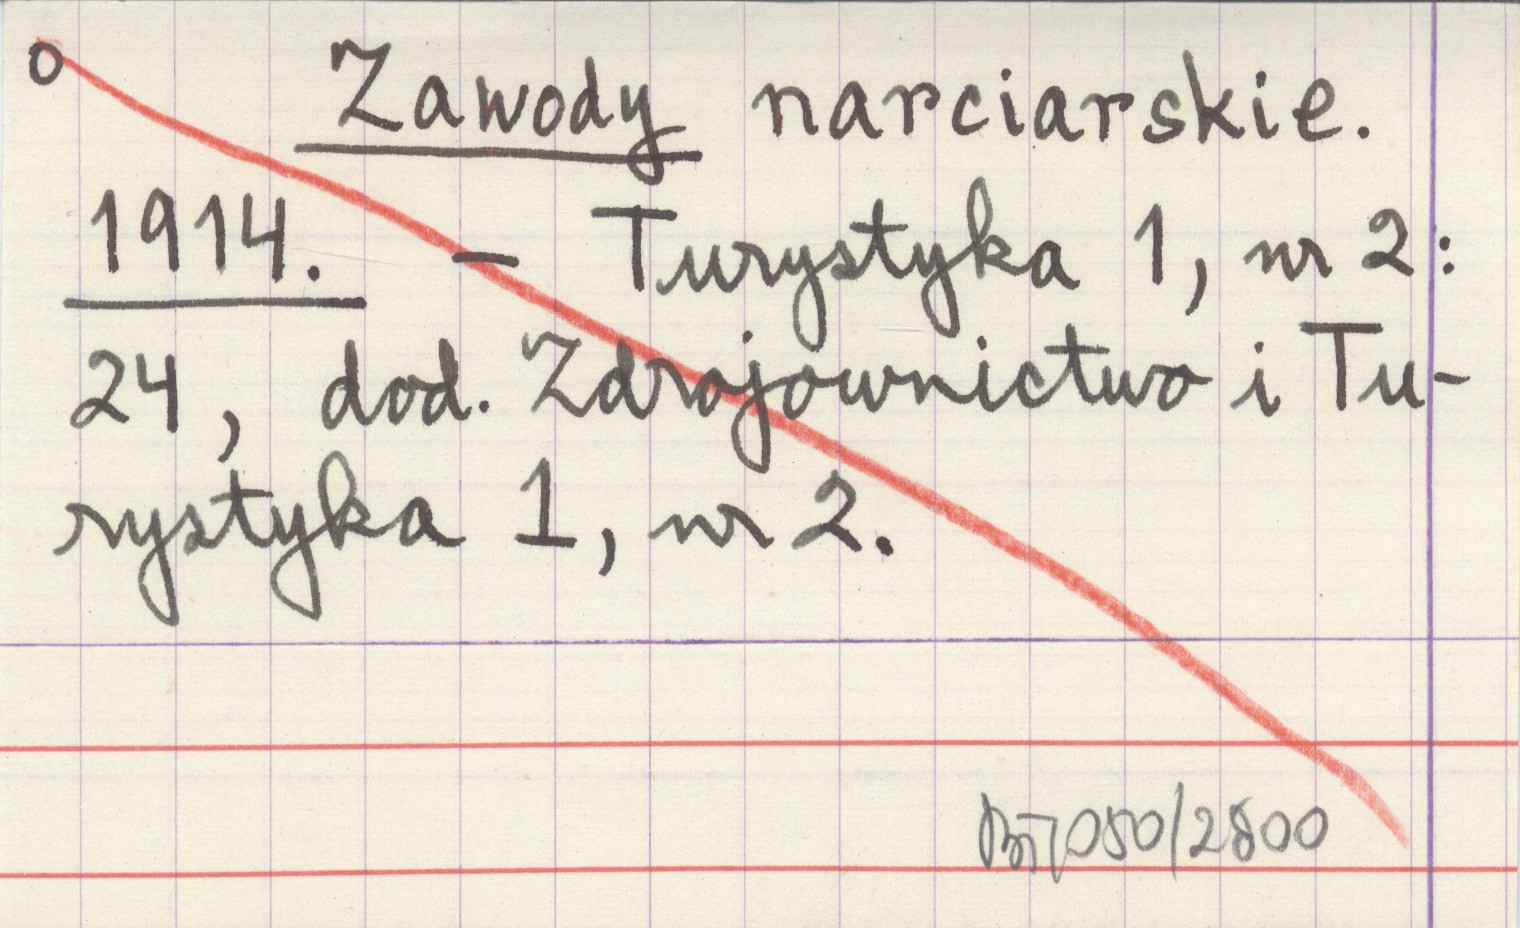 o Zawody narciarskie.
1914. - Turystyka 1, nr 2:
24, dod. Zdrojownictwo i Tu-
rystyka 1, nr 2.
050/2800